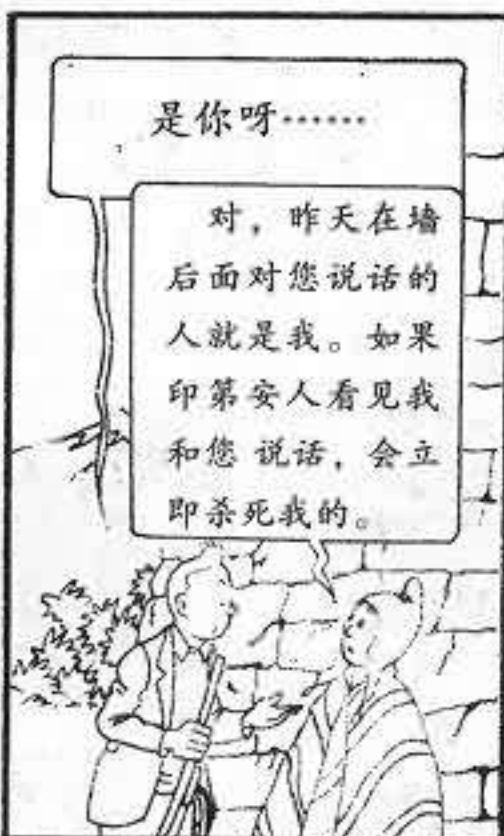 是你呀……
对，昨天在墙
后面对您说话的
人就是我。如果
印第安人看见我
和您 说话，会立
即杀死我的。